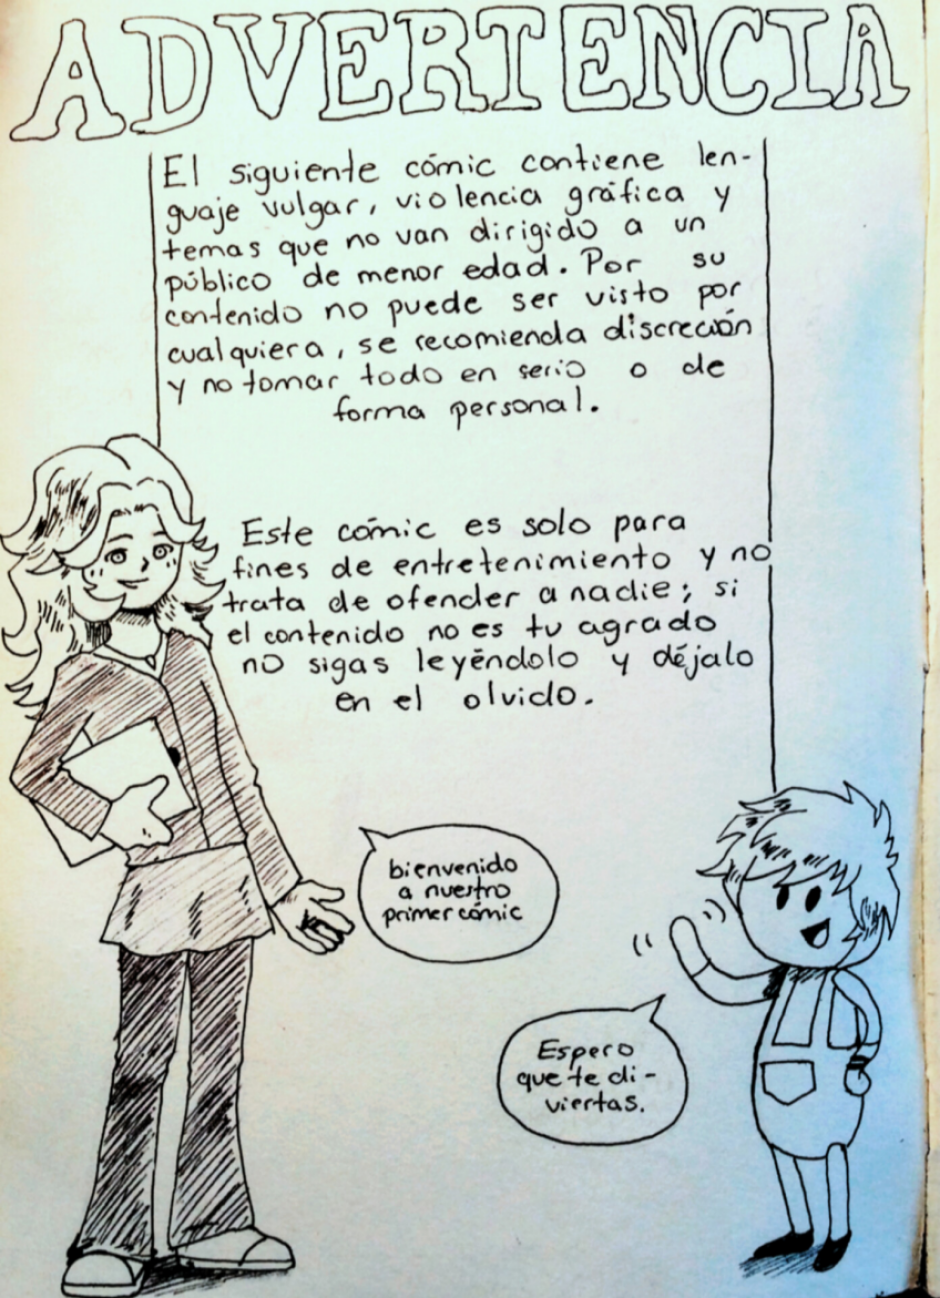 ADVERTENCIA
El siguiente cómic contiene len-
guaje vulgar, violencia gráfica y
temas que no van dirigido a un
público de menor edad. Por su
contenido no puede ser visto por
cualquiera, se recomienda discreción
y no tomar todo en serio o de
forma personal.
Este cómic es solo para
fines de entretenimiento y no
trata de ofender a nadie; si
el contenido no es tu agrado
no sigas leyéndolo y déjalo
en el olvido.
bienvenido
a nuestro
primer cómic
Espero
que te di-
viertas.